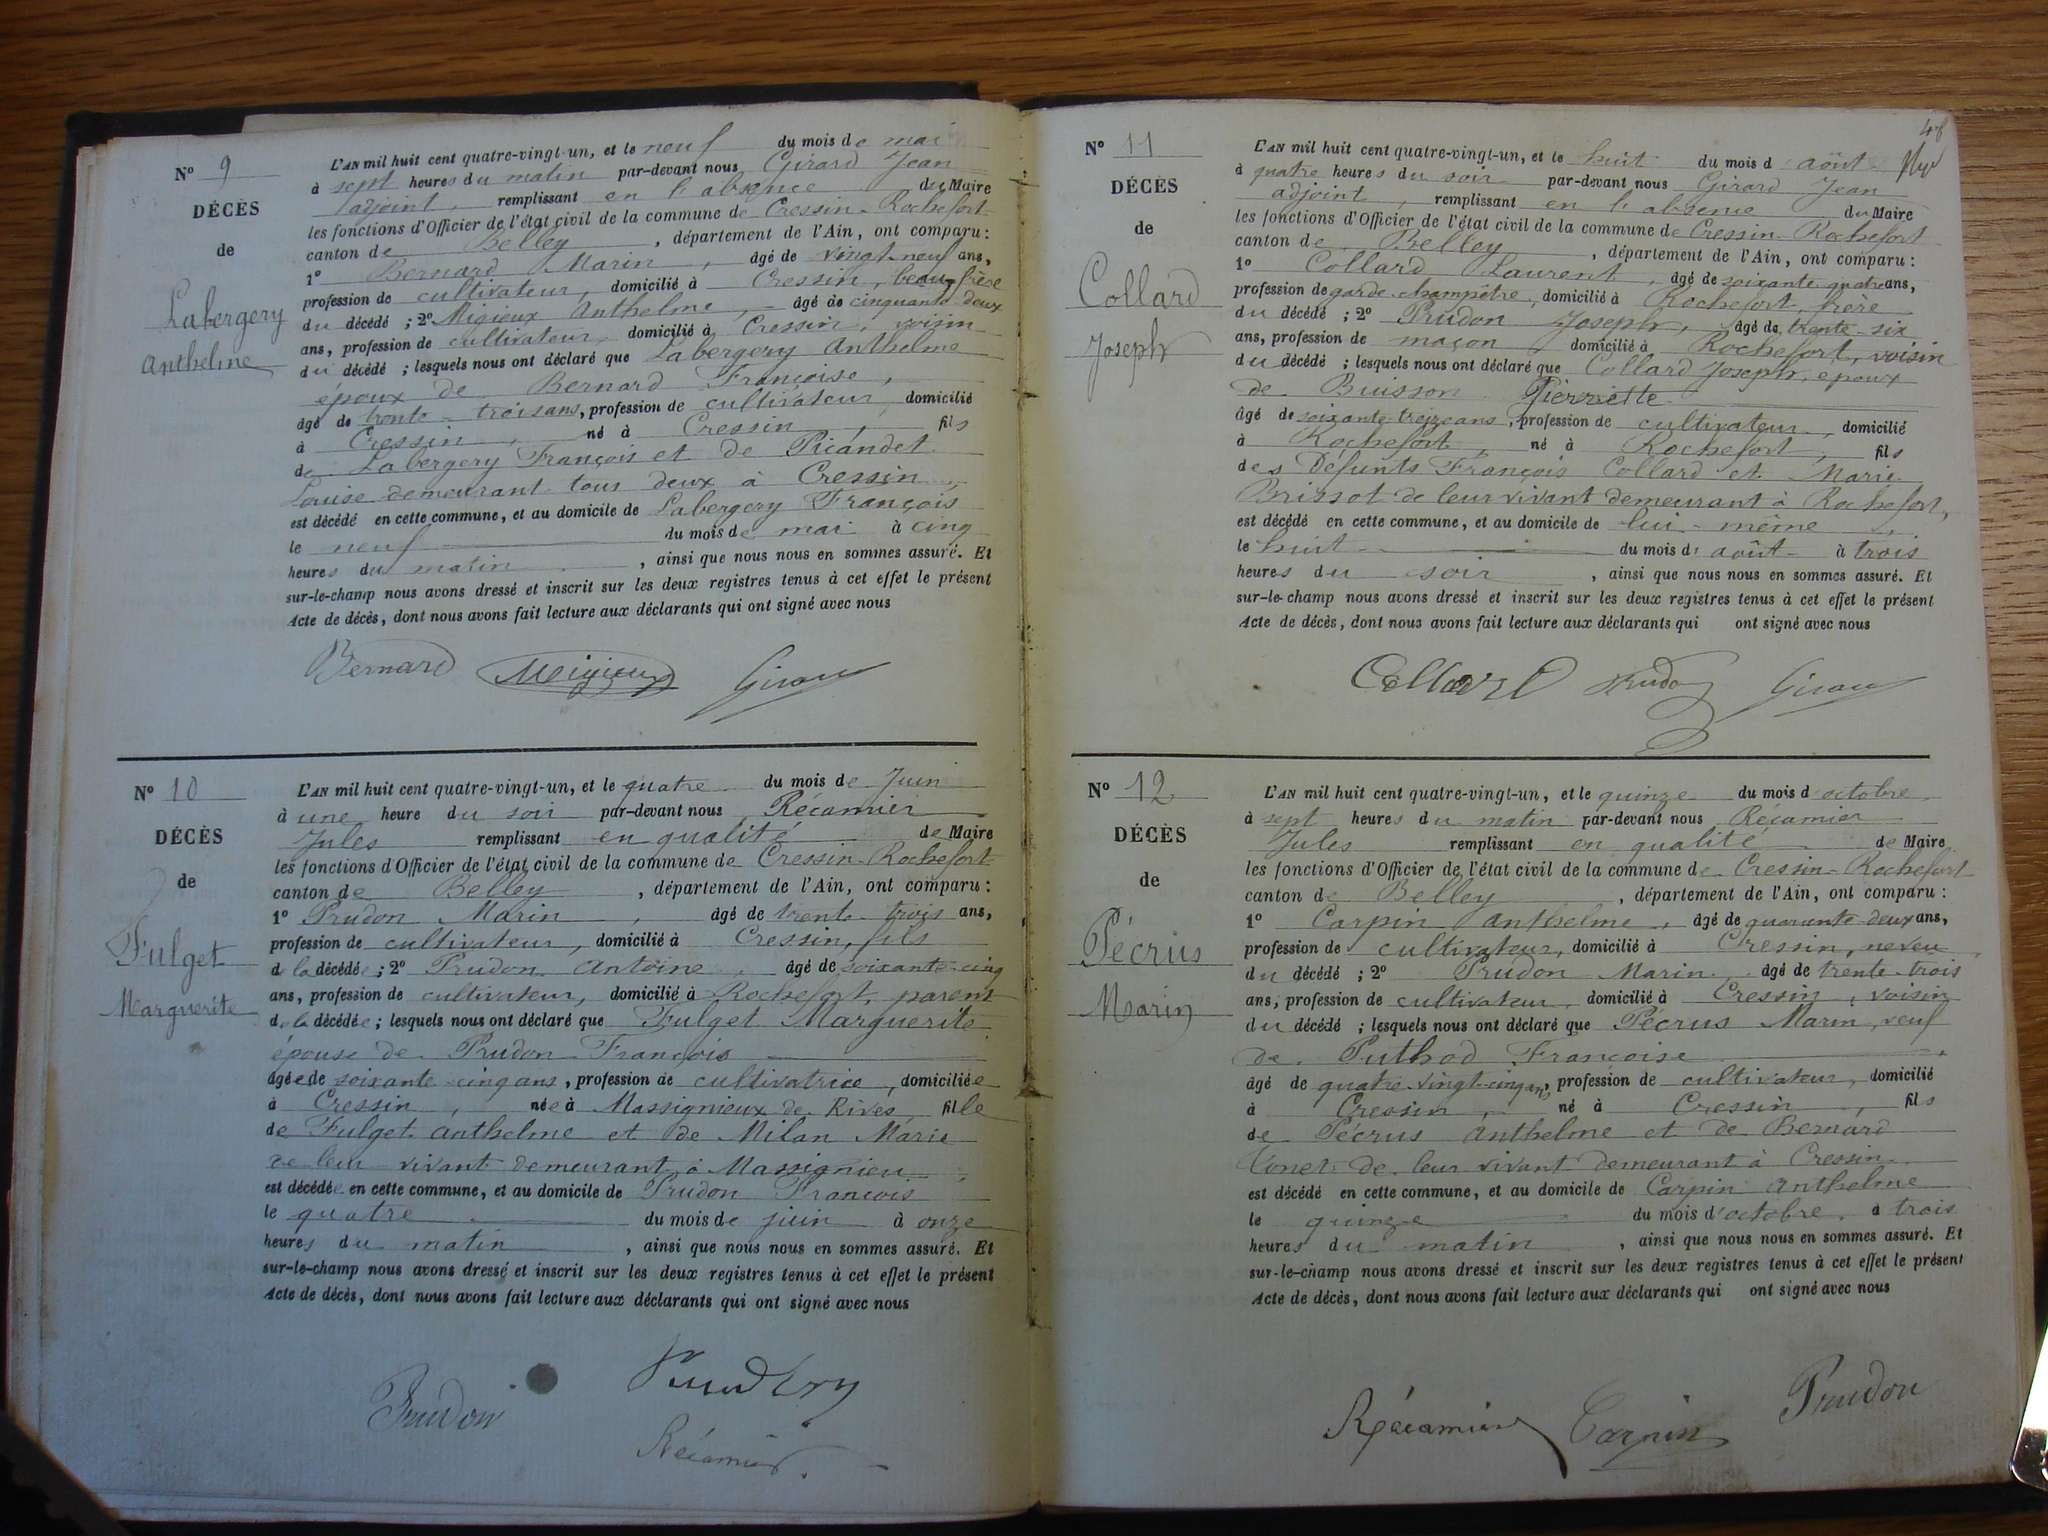 N° 9
DÉCÈS
de
Labergery
Anthelme
L'AN mil huit cent quatre-vingt-un, et le neuf du mois de mai
à sept heures du matin par-devant nous Girard Jean
adjoint, remplissant en l'absence du Maire
les fonctions d'Officier de l'état civil de la commune de Cressin-Rochefort
canton de Belley, département de l'Ain, ont comparu:
1° Bernard Marin, âgé de vingt-neuf ans,
profession de cultivateur, domicilié à Cressin, beau-frère
du décédé; 2° Migieux Anthelme, âgé de cinquante-deux
ans, profession de cultivateur, domicilié à Cressin, voisin
du décédé; lesquels nous ont déclaré que Labergery Anthelme
époux de Bernard Françoise,
âgé de trente-trois ans, profession de cultivateur, domicilié
à Cressin, né à Cressin, fils
de Labergery François et de Picandet
Louise demeurant tous deux à Cressin,
est décédé en cette commune, et au domicile de Labergery François
le neuf du mois de mai à cinq
heures du matin, ainsi que nous nous en sommes assuré. Et
sur-le-champ nous avons dressé et inscrit sur les deux registres tenus à cet effet le présent
Acte de décès, dont nous avons fait lecture aux déclarants qui ont signé avec nous
Bernard Migieux Girard
N° 10
DÉCÈS
de
Fulget
Marguerite
L'AN mil huit cent quatre-vingt-un, et le quatre du mois de Juin
à une heure du soir par-devant nous Récamier
Jules remplissant en qualité de Maire
les fonctions d'Officier de l'état civil de la commune de Cressin-Rochefort
canton de Belley, département de l'Ain, ont comparu:
1° Prudon Marin, âgé de trente-trois ans,
profession de cultivateur, domicilié à Cressin, fils
de la décédée; 2° Prudon Antoine, âgé de soixante-cinq
ans, profession de cultivateur, domicilié à Rochefort, parent
de la décédée; lesquels nous ont déclaré que Fulget Marguerite
épouse de Prudon François
âgée de soixante-cinq ans, profession de cultivatrice, domiciliée
à Cressin, née à Massignieux de Rives, fille
de Fulget Anthelme et de Milan Marie
de leur vivant demeurant à Massignieu,
est décédée en cette commune, et au domicile de Prudon François
le quatre du mois de juin à onze
heures du matin, ainsi que nous nous en sommes assuré. Et
sur-le-champ nous avons dressé et inscrit sur les deux registres tenus à cet effet le présent
Acte de décès, dont nous avons fait lecture aux déclarants qui ont signé avec nous
Prudon
Récamier
48
N° 11
DÉCÈS
de
Collard
Joseph
L'AN mil huit cent quatre-vingt-un, et le huit du mois d août
à quatre heures du soir par-devant nous Girard Jean
adjoint, remplissant en l'absence du Maire
les fonctions d'Officier de l'état civil de la commune de Cressin-Rochefort
canton de Belley, département de l'Ain, ont comparu:
1° Collard Laurent, âgé de soixante-quatre ans,
profession de garde-champêtre, domicilié à Rochefort, frère
du décédé; 2° Prudon Joseph, âgé de trente-six
ans, profession de maçon domicilié à Rochefort, voisin
du décédé; lesquels nous ont déclaré que Collard Joseph, époux
de Buisson Pierrette
âgé de soixante-treize ans, profession de cultivateur, domicilié
à Rochefort, né à Rochefort, fils
des Défunts François Collard et Marie
Brissot de leur vivant demeurant à Rochefort,
est décédé en cette commune, et au domicile de lui-même,
le huit du mois d' août à trois
heures du soir, ainsi que nous nous en sommes assuré. Et
sur-le-champ nous avons dressé et inscrit sur les deux registres tenus à cet effet le présent
Acte de décès, dont nous avons fait lecture aux déclarants qui ont signé avec nous
Collard Prudon Girard
N° 12
DÉCÈS
de
Pécrus
Marin
L'AN mil huit cent quatre-vingt-un, et le quinze du mois d'octobre
à sept heures du matin par-devant nous Récamier
Jules remplissant en qualité de Maire
les fonctions d'Officier de l'état civil de la commune de Cressin-Rochefort
canton de Belley, département de l'Ain, ont comparu:
1° Carpin Anthelme, âgé de quarante-deux ans,
profession de cultivateur, domicilié à Cressin, neveu
du décédé; 2° Prudon Marin âgé de trente-trois
ans, profession de cultivateur, domicilié à Cressin, voisin
du décédé; lesquels nous ont déclaré que Pécrus Marin, veuf
de Puthod Françoise
âgé de quatre-vingt-cinq ans, profession de cultivateur, domicilié
à Cressin, né à Cressin, fils
de Pécrus Anthelme et de Bernard
de leur vivant demeurant à Cressin
est décédé en cette commune, et au domicile de Carpin Anthelme
le quinze du mois d'octobre à trois
heures du matin, ainsi que nous nous en sommes assuré. Et
sur-le-champ nous avons dressé et inscrit sur les deux registres tenus à cet effet le présent
Acte de décès, dont nous avons fait lecture aux déclarants qui ont signé avec nous
Récamier Carpin Prudon